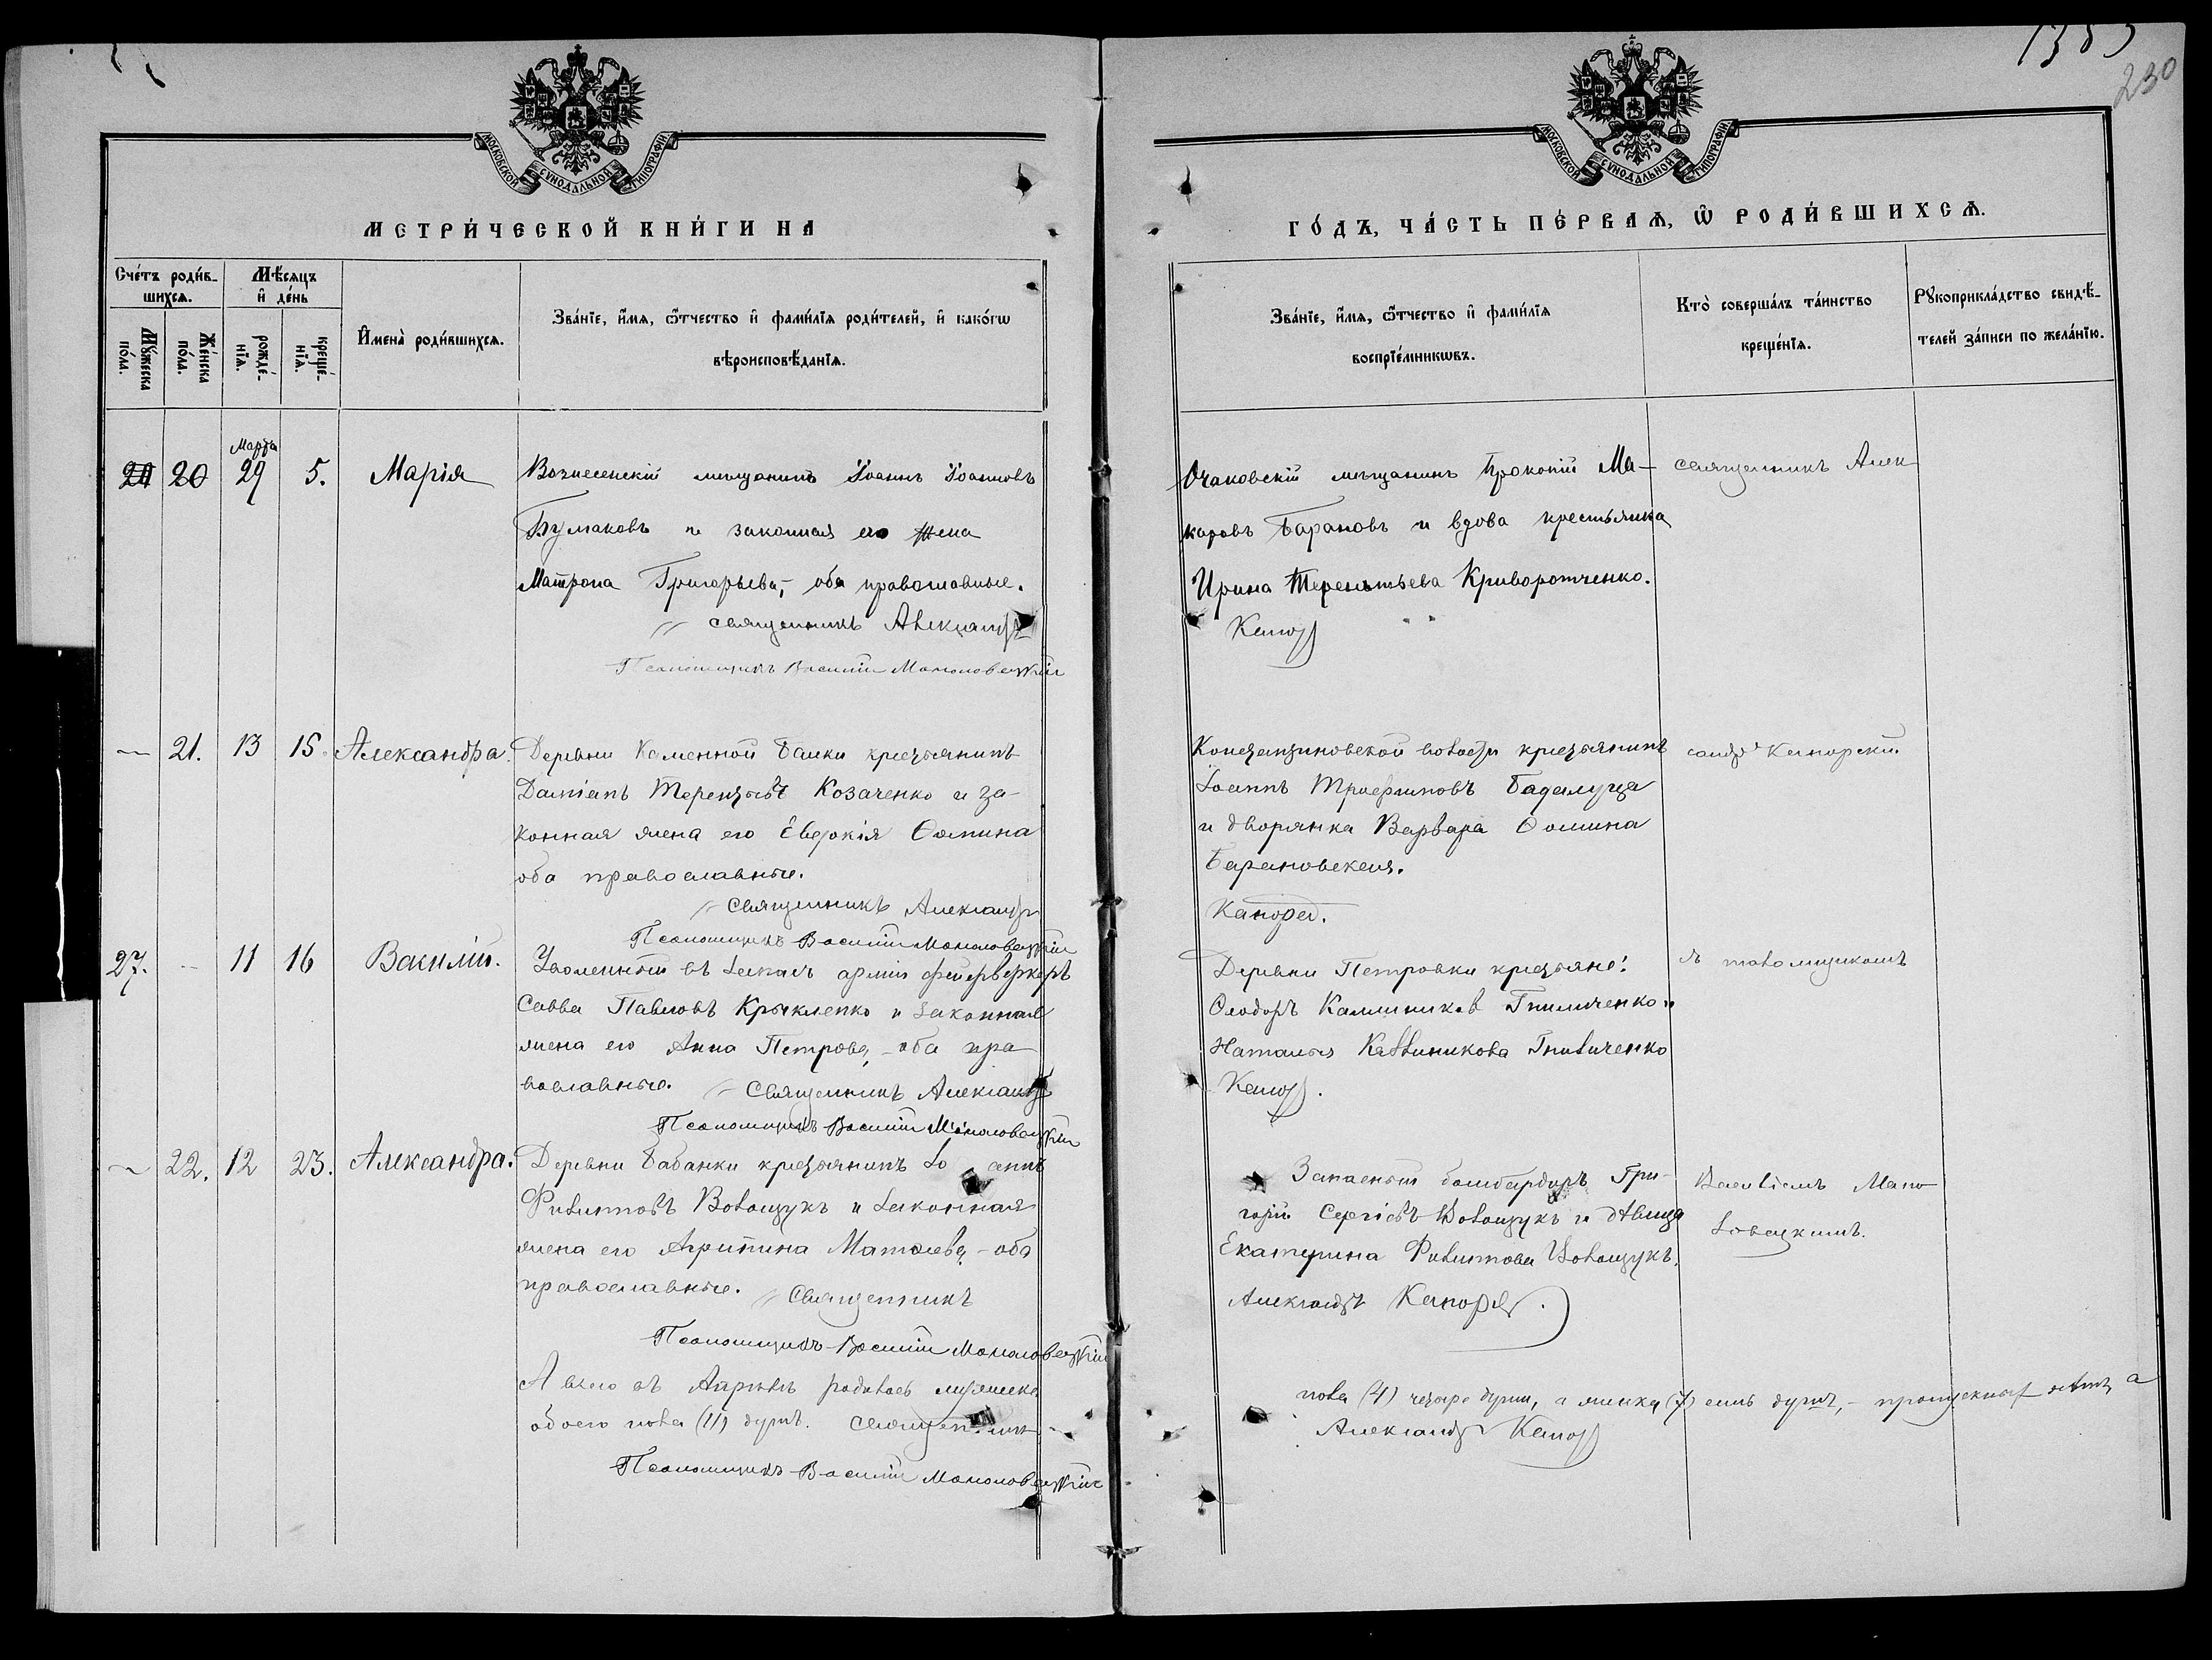 230
МОСКОВСКОЙ СѴНОДАЛЬНОЙ ТИПОГРАФІИ
МОСКОВСКОЙ СѴНОДАЛЬНОЙ ТИПОГРАФІИ
МЕТРИ́ЧЕСКОЙ КНИ́ГИ НА
ГО́ДЪ, ЧА́СТЬ ПЕ́РВАѦ, Ѡ РОДИ́ВШИХСѦ.
Сче́тъ роди́вшихсѧ.
Мꙋ́жеска по́ла.
Же́нска по́ла.
Мѣ́сѧцъ и҆ де́нь
рожде́нїѧ.
креще́нїѧ.
И҆мена̀ роди́вшихсѧ.
Зва́нїе, и҆́мѧ, ѻ҆́тчество и҆ фами́лїѧ роди́телей, и҆ како́гѡ
вѣроисповѣ́данїѧ.
Зва́нїе, и҆́мѧ, ѻ҆́тчество и҆ фами́лїѧ
воспрїе́мникѡвъ.
Кто̀ соверша́лъ та́инство
креще́нїѧ.
Рꙋкоприкла́дство свидѣ́телей за́писи по жела́нїю.
20
Марта
29 5.
Марія
Вознесенскій мѣщанинъ Іоаннъ Іоанновъ
Булаковъ и законная его жена
Матрона Григорьева, оба православные.
Священникъ Александръ
Псаломщикъ Василій Маноловецкій
Очаковскій мѣщанинъ Прокопій Ма-
каровъ Барановъ и вдова крестьянка
Ирина Терентьева Криворотченко.
священникъ Алек
21. 13 15. Александра.
Деревни Каменной Балки крестьянинъ
Даміанъ Терентьевъ Козаченко и за-
конная жена его Евдокія Ѳомина
оба православные.
Священникъ Александръ
Псаломщикъ Василій Маноловецкій
Іоаннъ Трифиновъ Бадалуца
и дворянка Варвара Ѳомина
Барановская.
сандръ Капорскій
27. 11 16 Василій.
Уволенный въ запасъ арміи фейерверкеръ
Савва Павловъ Крыкленко и законная
жена его Анна Петрова, - оба пра-
вославные. Священникъ Александръ
Псаломщикъ Василій Маноловецкій
Деревни Петровки крестьяне:
Ѳеодоръ Каллиниковъ Гниличенко и
Наталья Каллиникова Гниличенко
съ псаломщикомъ
22. 12 23. Александра.
Деревни Бабанки крестьянинъ Іоаннъ
Филиповъ Волощукъ и законная
жена его Агрипина Матѳеева, - оба
православные. Священникъ
Псаломщикъ Василій Маноловецкій
Запасный бомбардиръ Гри-
горій Сергіевъ Волощукъ и дѣвица
Екатерина Филиппова Волощукъ.
Александръ
Василіемъ Мано
ловецкимъ.
А всего въ Апрѣлѣ родилось мужеска
обоего пола (11) душъ. Священникъ
Псаломщикъ Василій Маноловецкій
пола (4) четыре души, а женска (7) семь душъ, -
Александръ